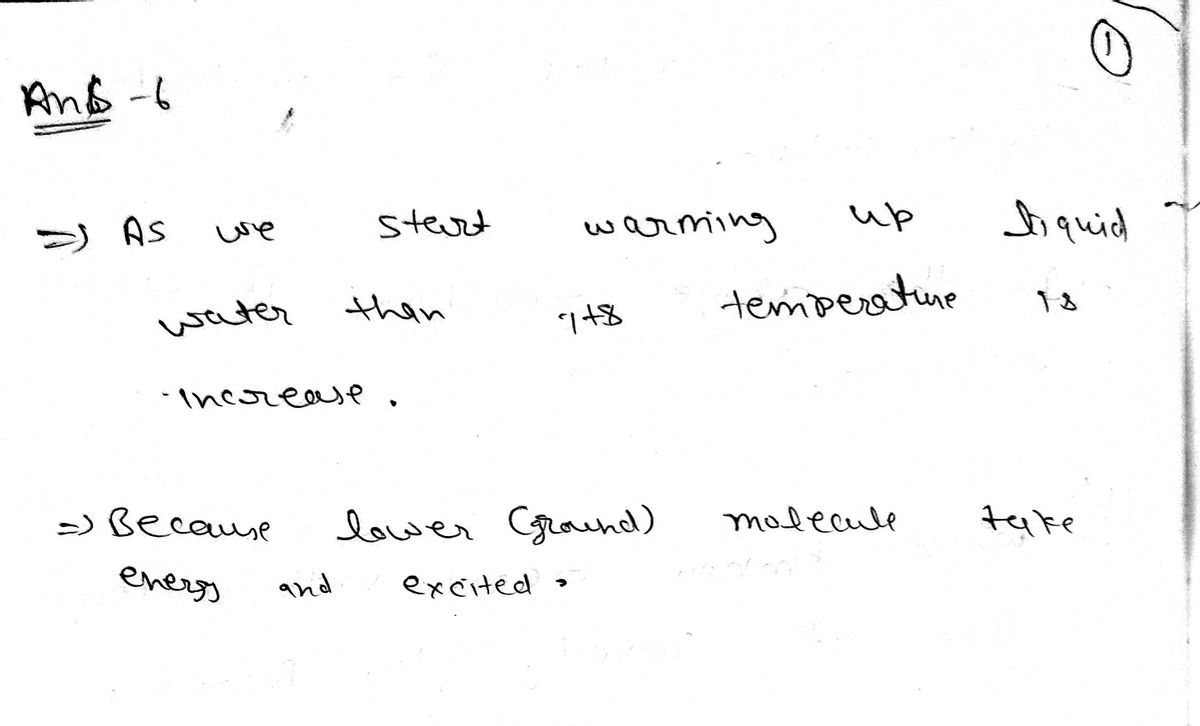 ①
Ans -6
=> As we start warming up liquid
water than its temperature is
increase.
=> Because lower (ground) molecule take
energy and excited.